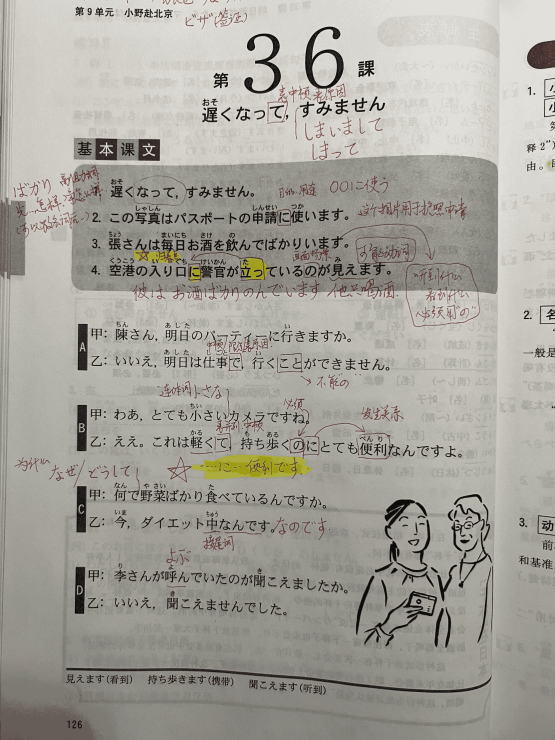 第9单元 小野赴北京
ビザ(签证)
第36課
表中顿表原因
遅くなって，すみません
しまいまして
基本课文
1. 遅くなって，すみません。
目的、用途 〇〇に使う
2. この写真はパスポートの申請に使います。
这个相片用于护照申请
3. 張さんは毎日お酒を飲んでばかりいます。
4. 空港の入り口に警官が立っているのが見えます。
彼はお酒ばかりのんでいます 他只喝酒
A
甲：陳さん，明日のパーティーに行きますか。
乙：いいえ，明日は仕事で，行くことができません。
不能の
B
甲：わあ，とても小さいカメラですね。
乙：ええ。これは軽くて，持ち歩くのにとても便利なんですよ。
为什么 なぜ/どうして
…に…便利です
C
甲：何で野菜ばかり食べているんですか。
乙：今，ダイエット中なんです。
なのです
よぶ
D
甲：李さんが呼んでいたのが聞こえましたか。
乙：いいえ，聞こえませんでした。
見えます(看到) 持ち歩きます(携带) 聞こえます(听到)
126